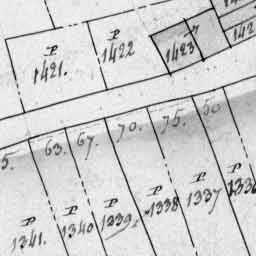 P
1421.
P
1422
1423
142
5.
63.
67.
70.
75.
50
P
1341.
P
1340
P
1339.
P
1338
P
1337
P
1336